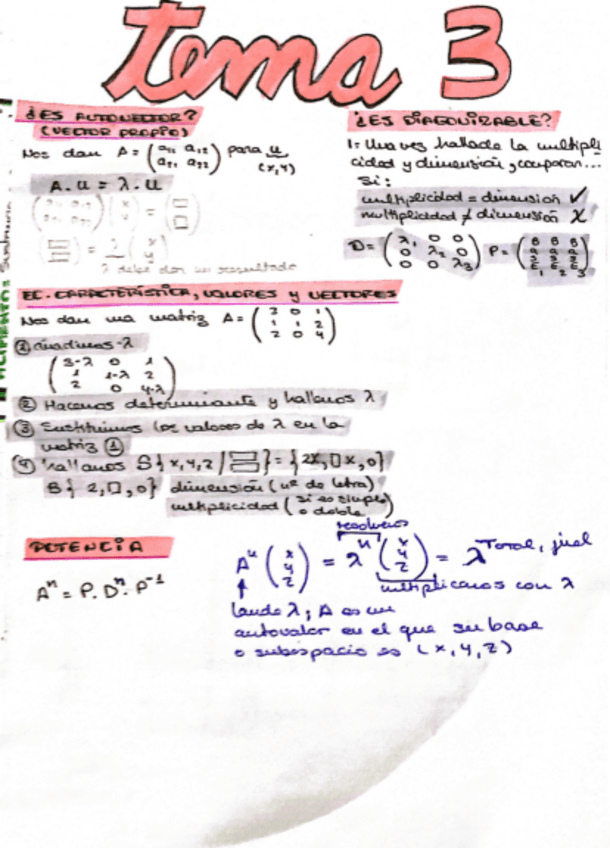 tema 3
¿ES AUTOVECTOR?
(VECTOR PROPIO)
Nos dan A = (a₁₁ a₁₂ / a₂₁ a₂₂) para u (x,y)
A · u = λ · u
λ debe dar un resultado
¿ES DIAGONIZABLE?
1: Una vez hallada la multipli
cidad y dimensión, comparan...
Si:
multiplicidad = dimensión ✓
multiplicidad ≠ dimensión X
D = (λ₁ 0 0 / 0 λ₂ 0 / 0 0 λ₃) P =
EC. CARACTERÍSTICA, VALORES Y VECTORES
Nos dan una matriz A = (3 0 1 / 1 1 2 / 2 0 4)
① añadimos -λ
(3-λ 0 1 / 1 1-λ 2 / 2 0 4-λ)
② Hacemos determinante y hallamos λ
③ Sustituimos los valores de λ en la
matriz ①
④ hallamos S{x,y,z / ▭} = {2x,▯x,0}
B{2,▯,0} dimensión (nº de letra)
multiplicidad (si es simple
o doble)
POTENCIA
Aⁿ = P · Dⁿ · P⁻¹
resolvemos
Aⁿ (x / y / z) = λⁿ (x / y / z) = λ
multiplicamos con λ
λ, A es un
autovalor en el que su base
o subespacio es (x,y,z)